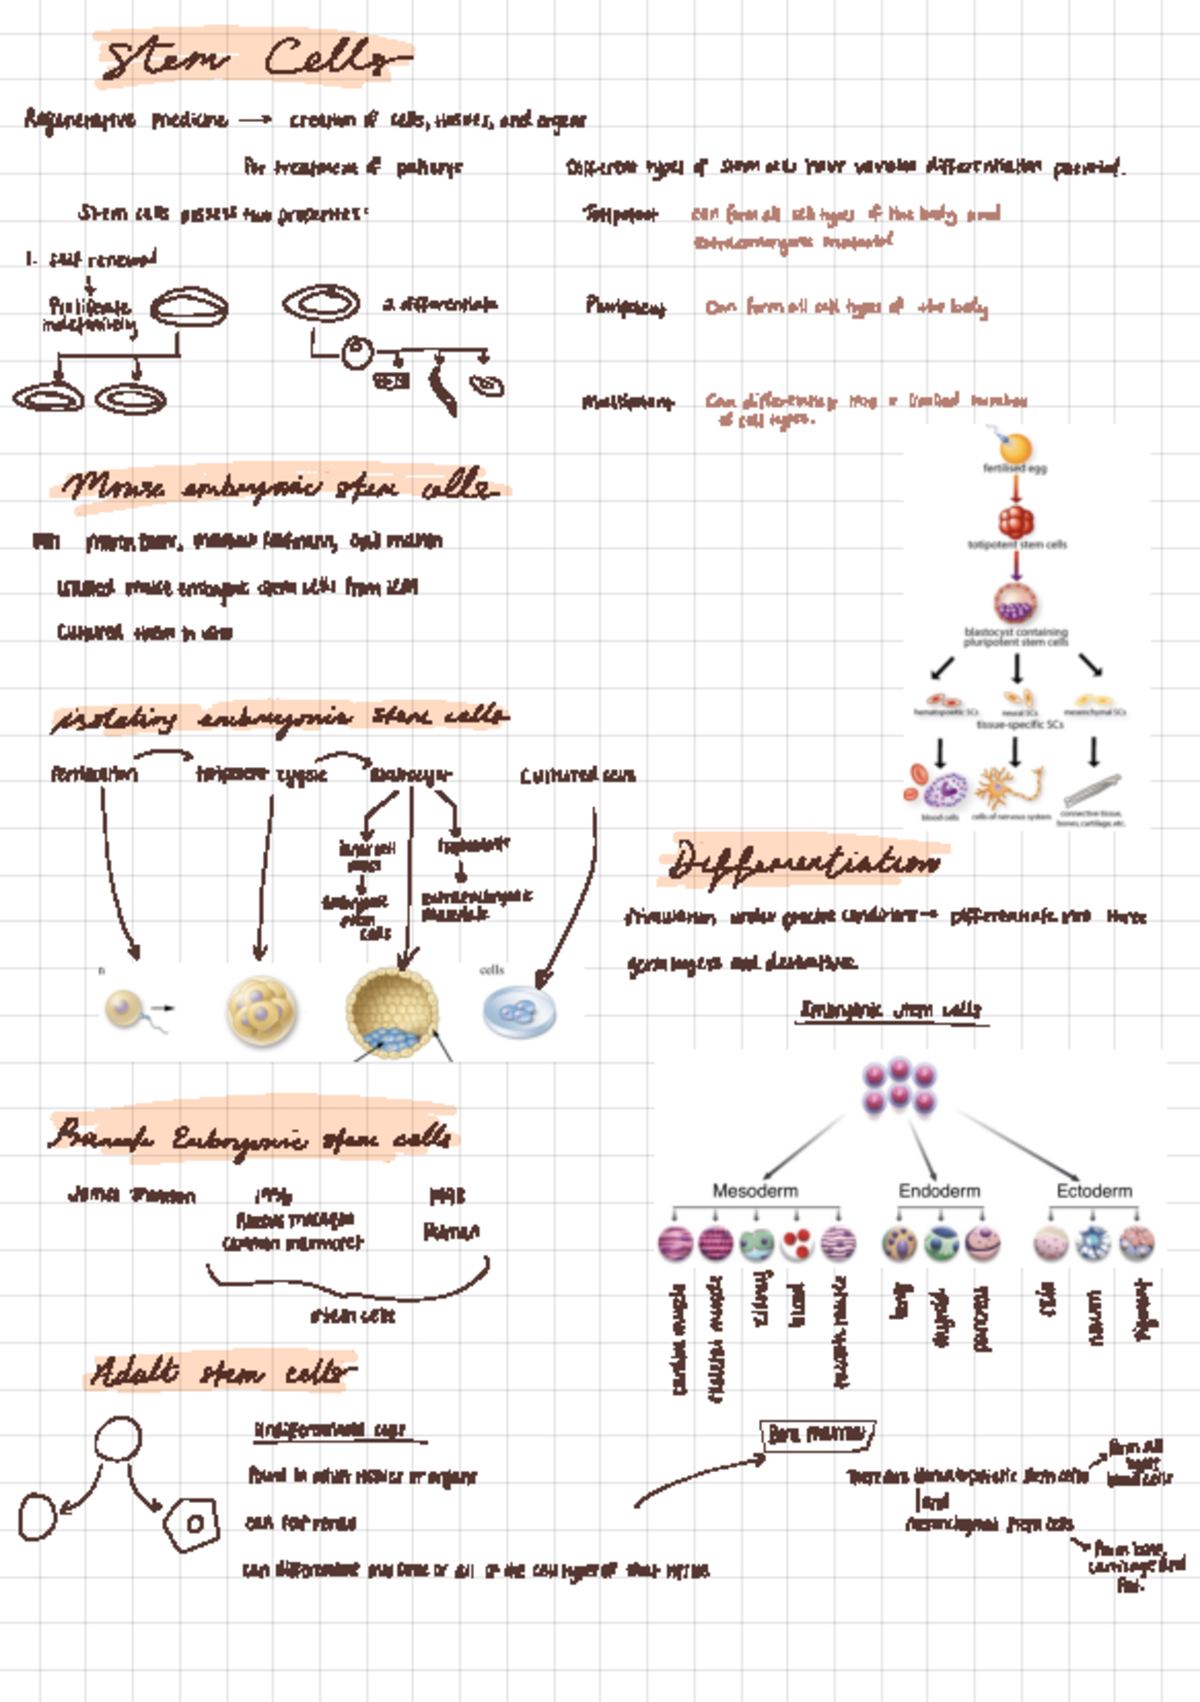 Stem Cells
Regenerative medicine → creation of cells, tissues, and organs
for treatment of patients
Stem cells possess two properties:
1. self renewal
Proliferate
indefinitely
2. differentiate
Different types of stem cells have various differentiation potential.
Totipotent can form all cell types of the body and
extraembryonic material
Pluripotent Can form all cell types of the body
Multipotent Can differentiate into a limited number
of cell types.
fertilised egg
totipotent stem cells
blastocyst containing
pluripotent stem cells
hematopoietic SCs neural SCs mesenchymal SCs
tissue-specific SCs
blood cells cells of nervous system connective tissue,
bones, cartilage, etc.
Mouse embryonic stem cells
1981
isolated mouse embryonic stem cells from ICM
Cultured them in vitro
isolating embryonic stem cells
fertilisation totipotent zygote blastocyst Cultured cells
inner cell
mass
trophoblast
embryonic
stem
cells
extraembryonic
material
n
cells
Differentiation
Stimulation under precise conditions → differentiate into three
germ layers and derivative.
Embryonic stem cells
Mesoderm Endoderm Ectoderm
cardiac muscle
skeletal muscle
kidney
blood
smooth muscle
lung
thyroid
pancreas
skin
neuron
pigment
Primate Embryonic stem cells
James Thomson 1996 1998
Rhesus macaque
common marmoset
Human
stem cells
Adult stem cells
Undifferentiated cells
found in other tissues or organs
can self renew
can differentiate into some or all of the cell types of that tissue
Bone marrow
There are hematopoietic stem cells
form all
blood cells
and
mesenchymal stem cells
form bone,
cartilage and
fat.